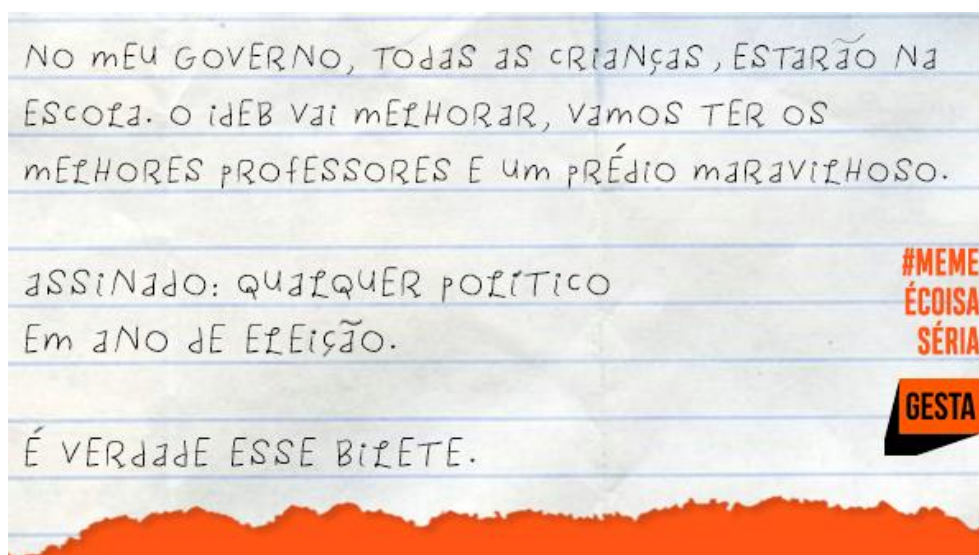 NO mEU GOVERNO, TOdaS aS CRiaNçaS, ESTaRãO Na
ESCOLa. O idEB Vai mELHORaR, VamOS TER OS
mELHORES PROfESSORES E Um PRÉdiO maRaViLHOSO.
aSSiNadO: QUaLQUER POLíTiCO
Em aNO dE ELEiçãO.
É VERdadE ESSE BiLETE.
#MEME
ÉCOISA
SÉRIA
GESTA